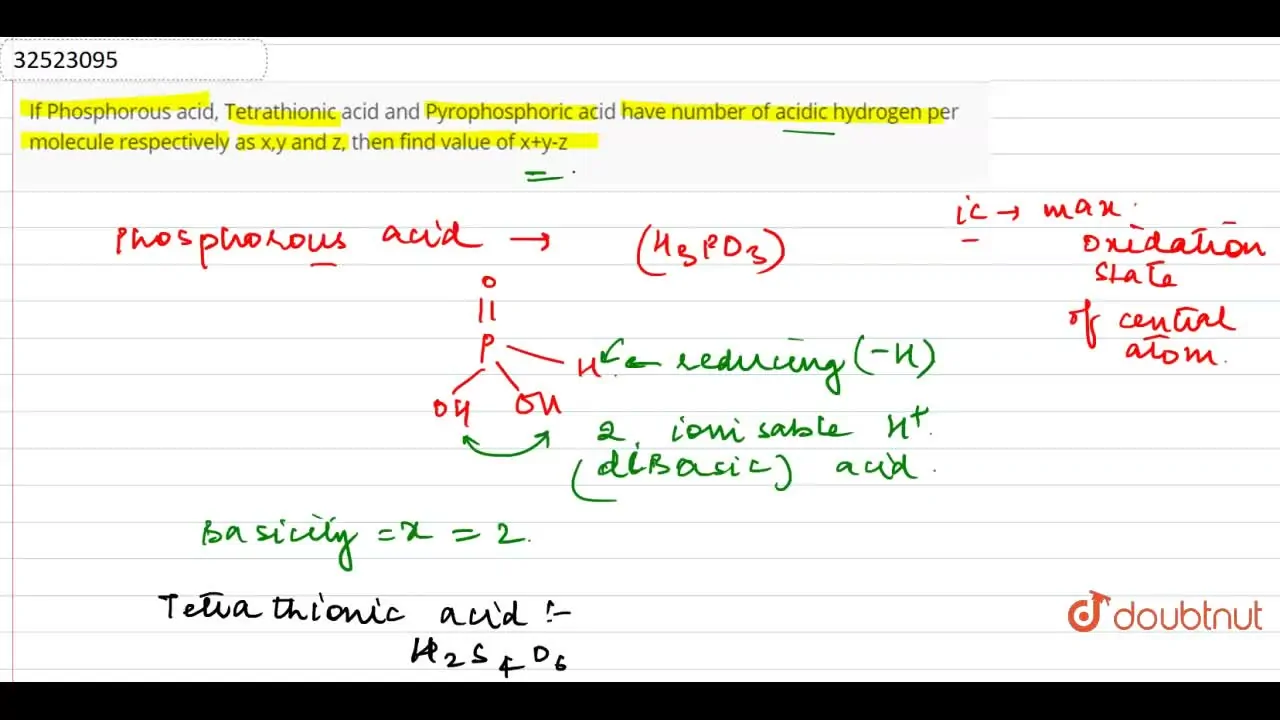 32523095
If Phosphorous acid, Tetrathionic acid and Pyrophosphoric acid have number of acidic hydrogen per
molecule respectively as x,y and z, then find value of x+y-z
Phosphorous acid → (H3PO3)
ic → max.
oxidation
state
of central
atom.
O
P
H ← reducing (-H)
OH OH
2 ionisable H+.
(diBasic) acid.
Basicity = x = 2.
Tetrathionic acid :-
H2S4O6
doubtnut